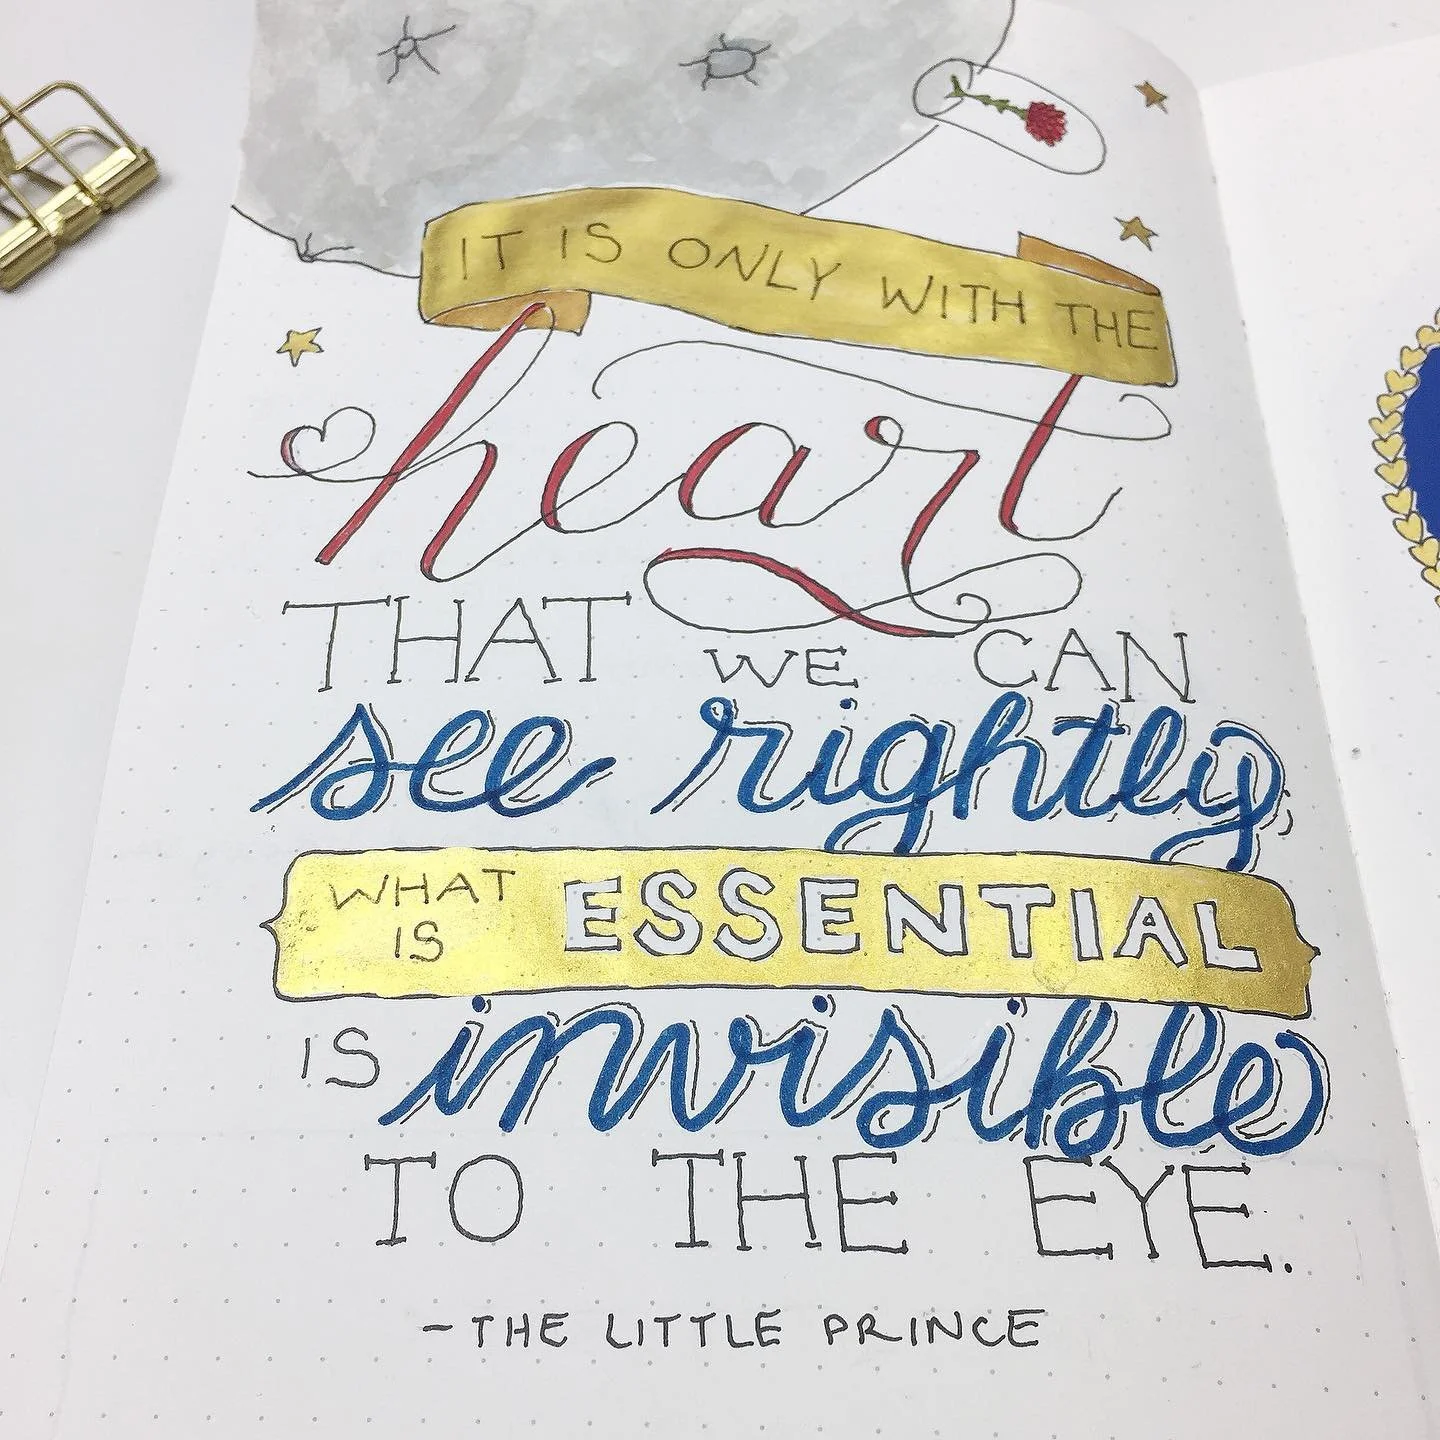 IT IS ONLY WITH THE
heart
THAT WE CAN
see rightly
WHAT IS ESSENTIAL
IS invisible
TO THE EYE.
-THE LITTLE PRINCE